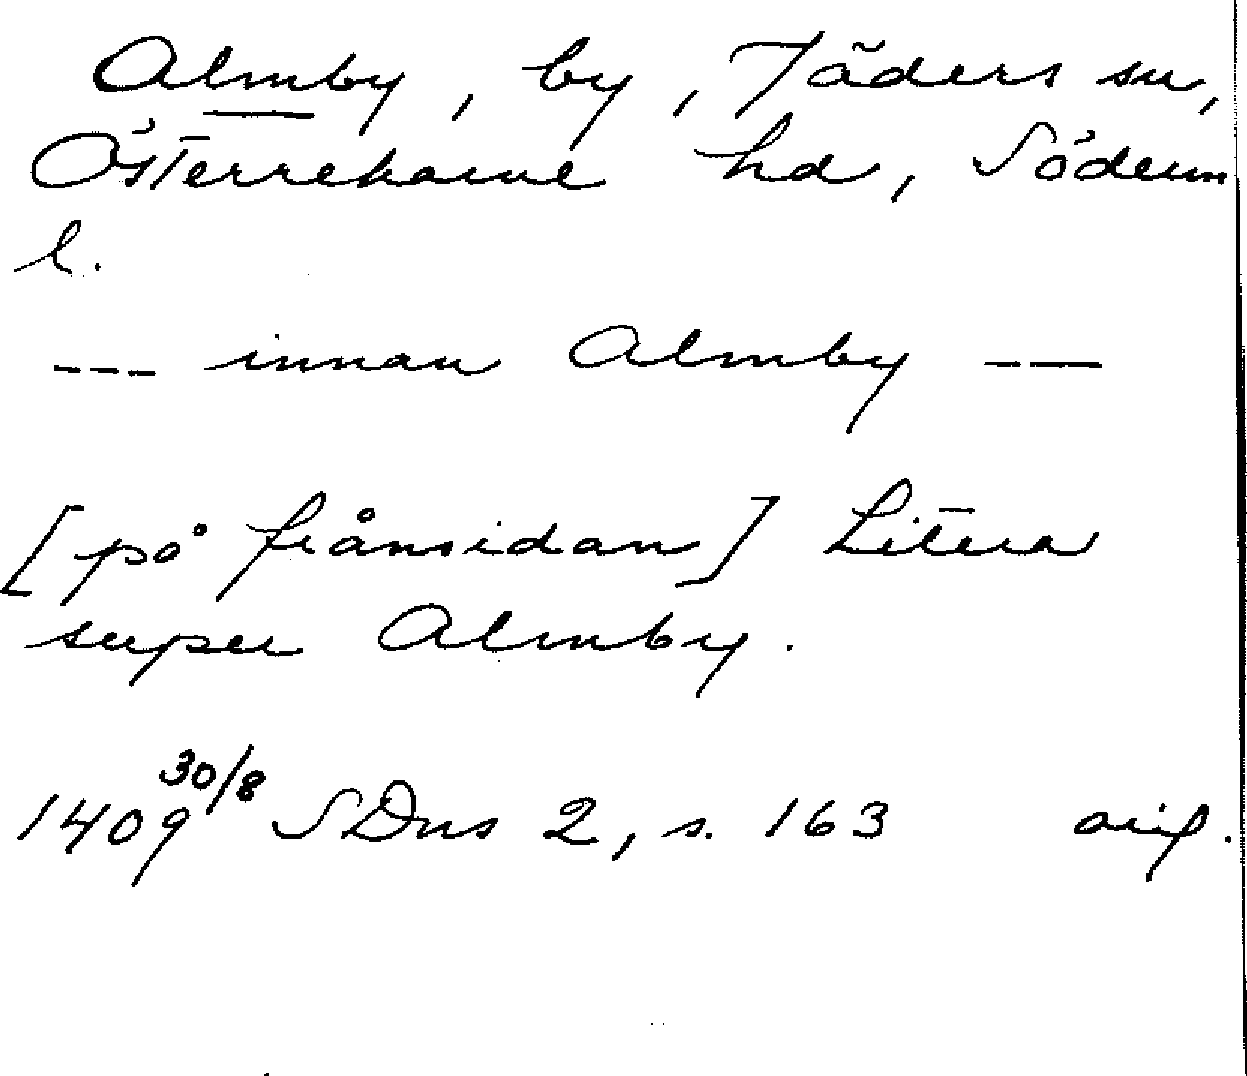 Almby, by, Jäders sn,
Österrekarne hd, Söderm
l.
--- innan Almby ---
[på frånsidan] Litera
super Almby.
1409 30/8 SDns 2, s. 163 orig.